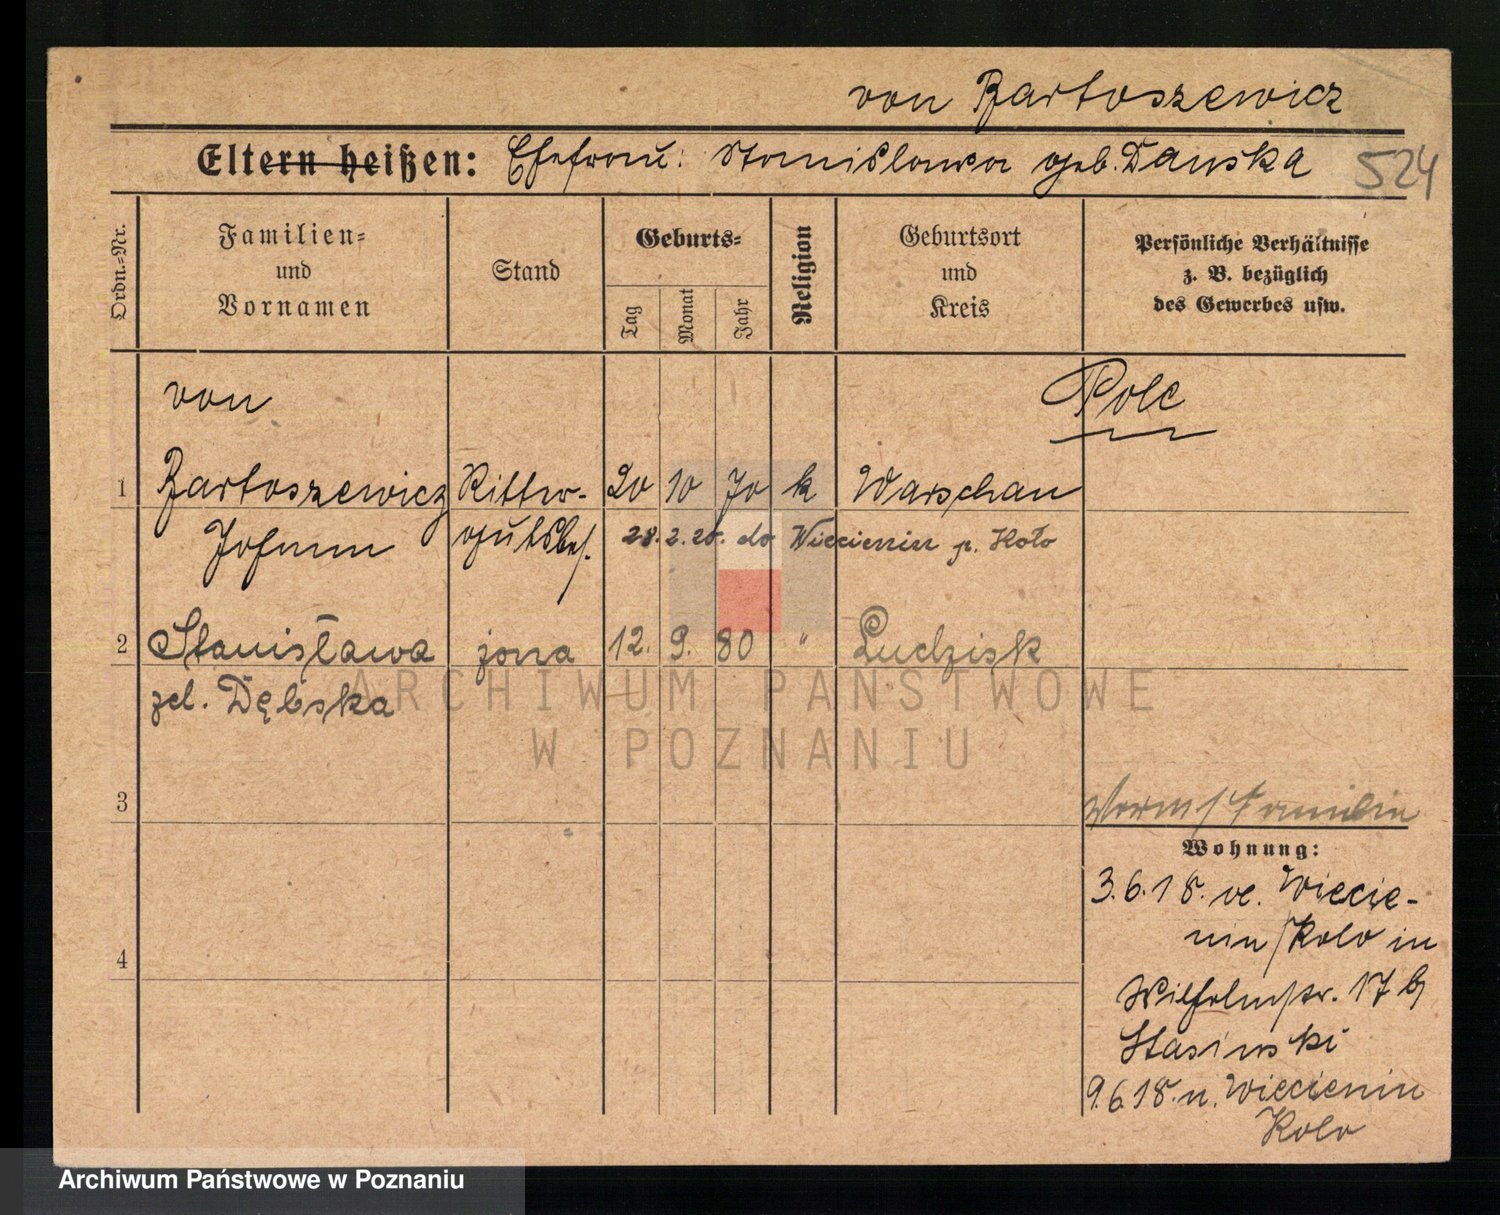 von Bartoszewicz
Eltern heißen: Ehefrau: Stanislawa geb. Danska
524
Ordn.-Nr.
Familien-
und
Vornamen
Stand
Geburts-
Tag
Monat
Jahr
Religion
Geburtsort
und
Kreis
Persönliche Verhältnisse
z. B. bezüglich
des Gewerbes usw.
von
Pole
1 Bartoszewicz Ritter- 20 10 70 k Warschau
Johann gutsbes. 28.2.20. do Wiecienin p. Koło
2 Stanisława żona 12. 9. 80 " Ludzisk
zel. Dębska
ARCHIWUM PAŃSTWOWE
W POZNANIU
3
Wohnung:
3.6.18. v. Wiecie-
nin/Kolo in
4
Wilhelmstr. 17 b
Stasinski
9.6.18. n. Wiecienin
Kolo
Archiwum Państwowe w Poznaniu